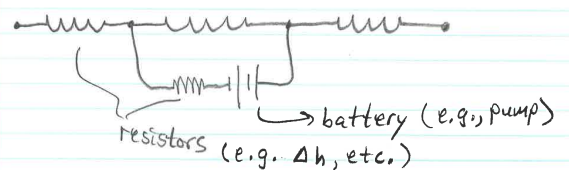 battery (e.g., pump)
resistors (e.g. Δh, etc.)